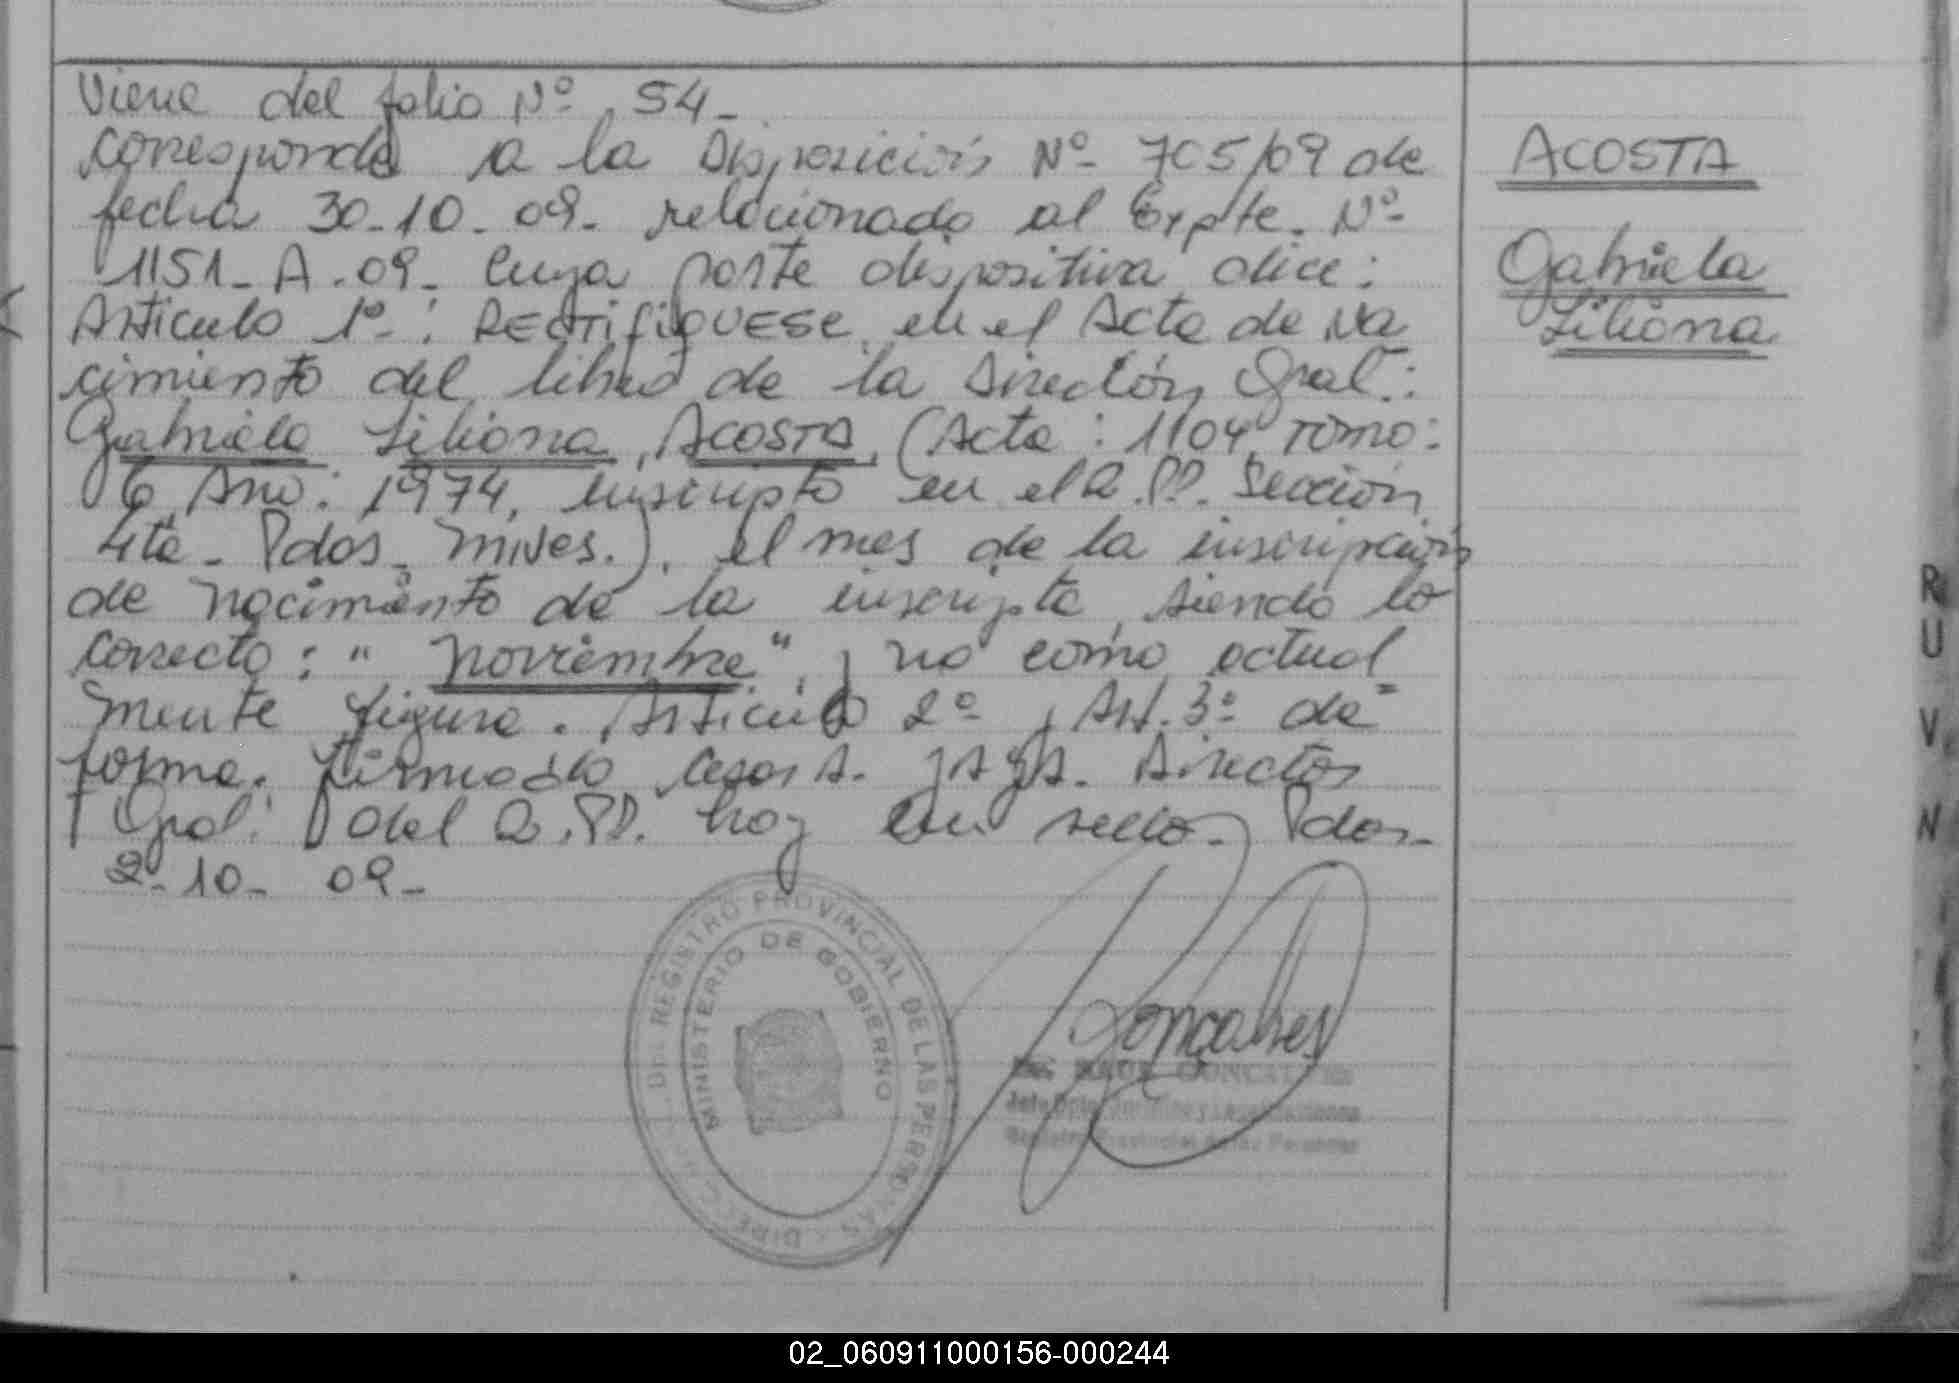 Viene del folio Nº 54_
corresponde a la Disposición Nº 705/09 de
fecha 30-10-09- relacionado al Expte. Nº
1151-A-09- Cuya parte dispositiva dice:
Articulo 1º: RECTIFIQUESE en el Acta de Na
cimiento del libro de la Dirección Gral.:
Gabriela Liliana ACOSTA, (Acta: 1104 Tomo:
6 Año: 1974, inscripto en el R.PP. Sección
4ta- Pdas- Mnes.). el mes de la inscripción
de nacimiento de la inscripta, siendo lo
correcto: "noviembre", y no como actual
mente figura. Articulo 2º y Art. 3º de
forma. Firmado Cesar A. Director
Gral. del R.PP. hay un sello- Pdas-
2-10-09-
ACOSTA
Gabriela
Liliana
REGISTRO PROVINCIAL DE LAS PERSONAS
MINISTERIO DE GOBIERNO
Goncalves
GONCALVES
Registro Provincial de las Personas
R
U
V
N
02_060911000156-000244